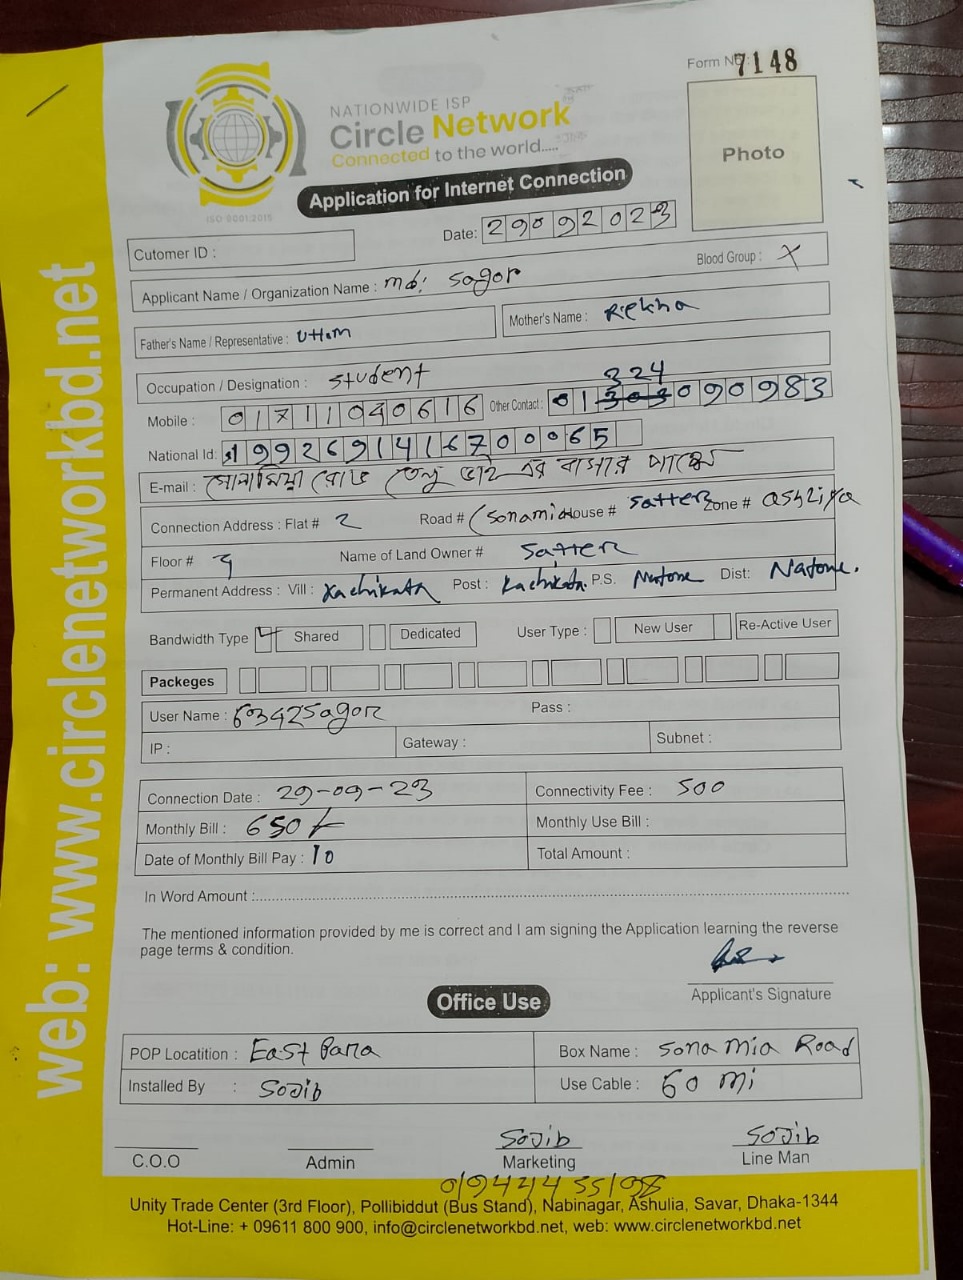 Form No: 7148
NATIONWIDE ISP
Circle Network
Connected to the world.....
Photo
ISO 9001:2015
Application for Internet Connection
Date: 29092023
Cutomer ID :
Blood Group : X
Applicant Name / Organization Name : md: Sagor
Father's Name / Representative : Uttam
Mother's Name : Riekha
Occupation / Designation : Student
324
Mobile : 01711040616 Other Contact : 01303090983
National Id: 19926914167000065
E-mail : সোনামিয়া রোড তেলু ভাই এর বাসার পাশে
Connection Address : Flat # 2 Road # (Sonamia House # Satter Zone # ashliya
Floor # 3 Name of Land Owner # Satter
Permanent Address : Vill : Kachikata Post : Kachikata. P.S. Natore Dist: Natore.
Bandwidth Type Shared Dedicated User Type : New User Re-Active User
Packeges
User Name : 63425agor Pass :
IP : Gateway : Subnet :
Connection Date : 29-09-23 Connectivity Fee : 500
Monthly Bill : 650/- Monthly Use Bill :
Date of Monthly Bill Pay : 10 Total Amount :
In Word Amount :
The mentioned information provided by me is correct and I am signing the Application learning the reverse
page terms & condition.
Applicant's Signature
Office Use
POP Locatition : East Para Box Name : Sona mia Road
Installed By : Sojib Use Cable : 60 mi
Sojib Sojib
C.O.O Admin Marketing Line Man
Unity Trade Center (3rd Floor), Pollibiddut (Bus Stand), Nabinagar, Ashulia, Savar, Dhaka-1344
Hot-Line: + 09611 800 900, info@circlenetworkbd.net, web: www.circlenetworkbd.net
web: www.circlenetworkbd.net